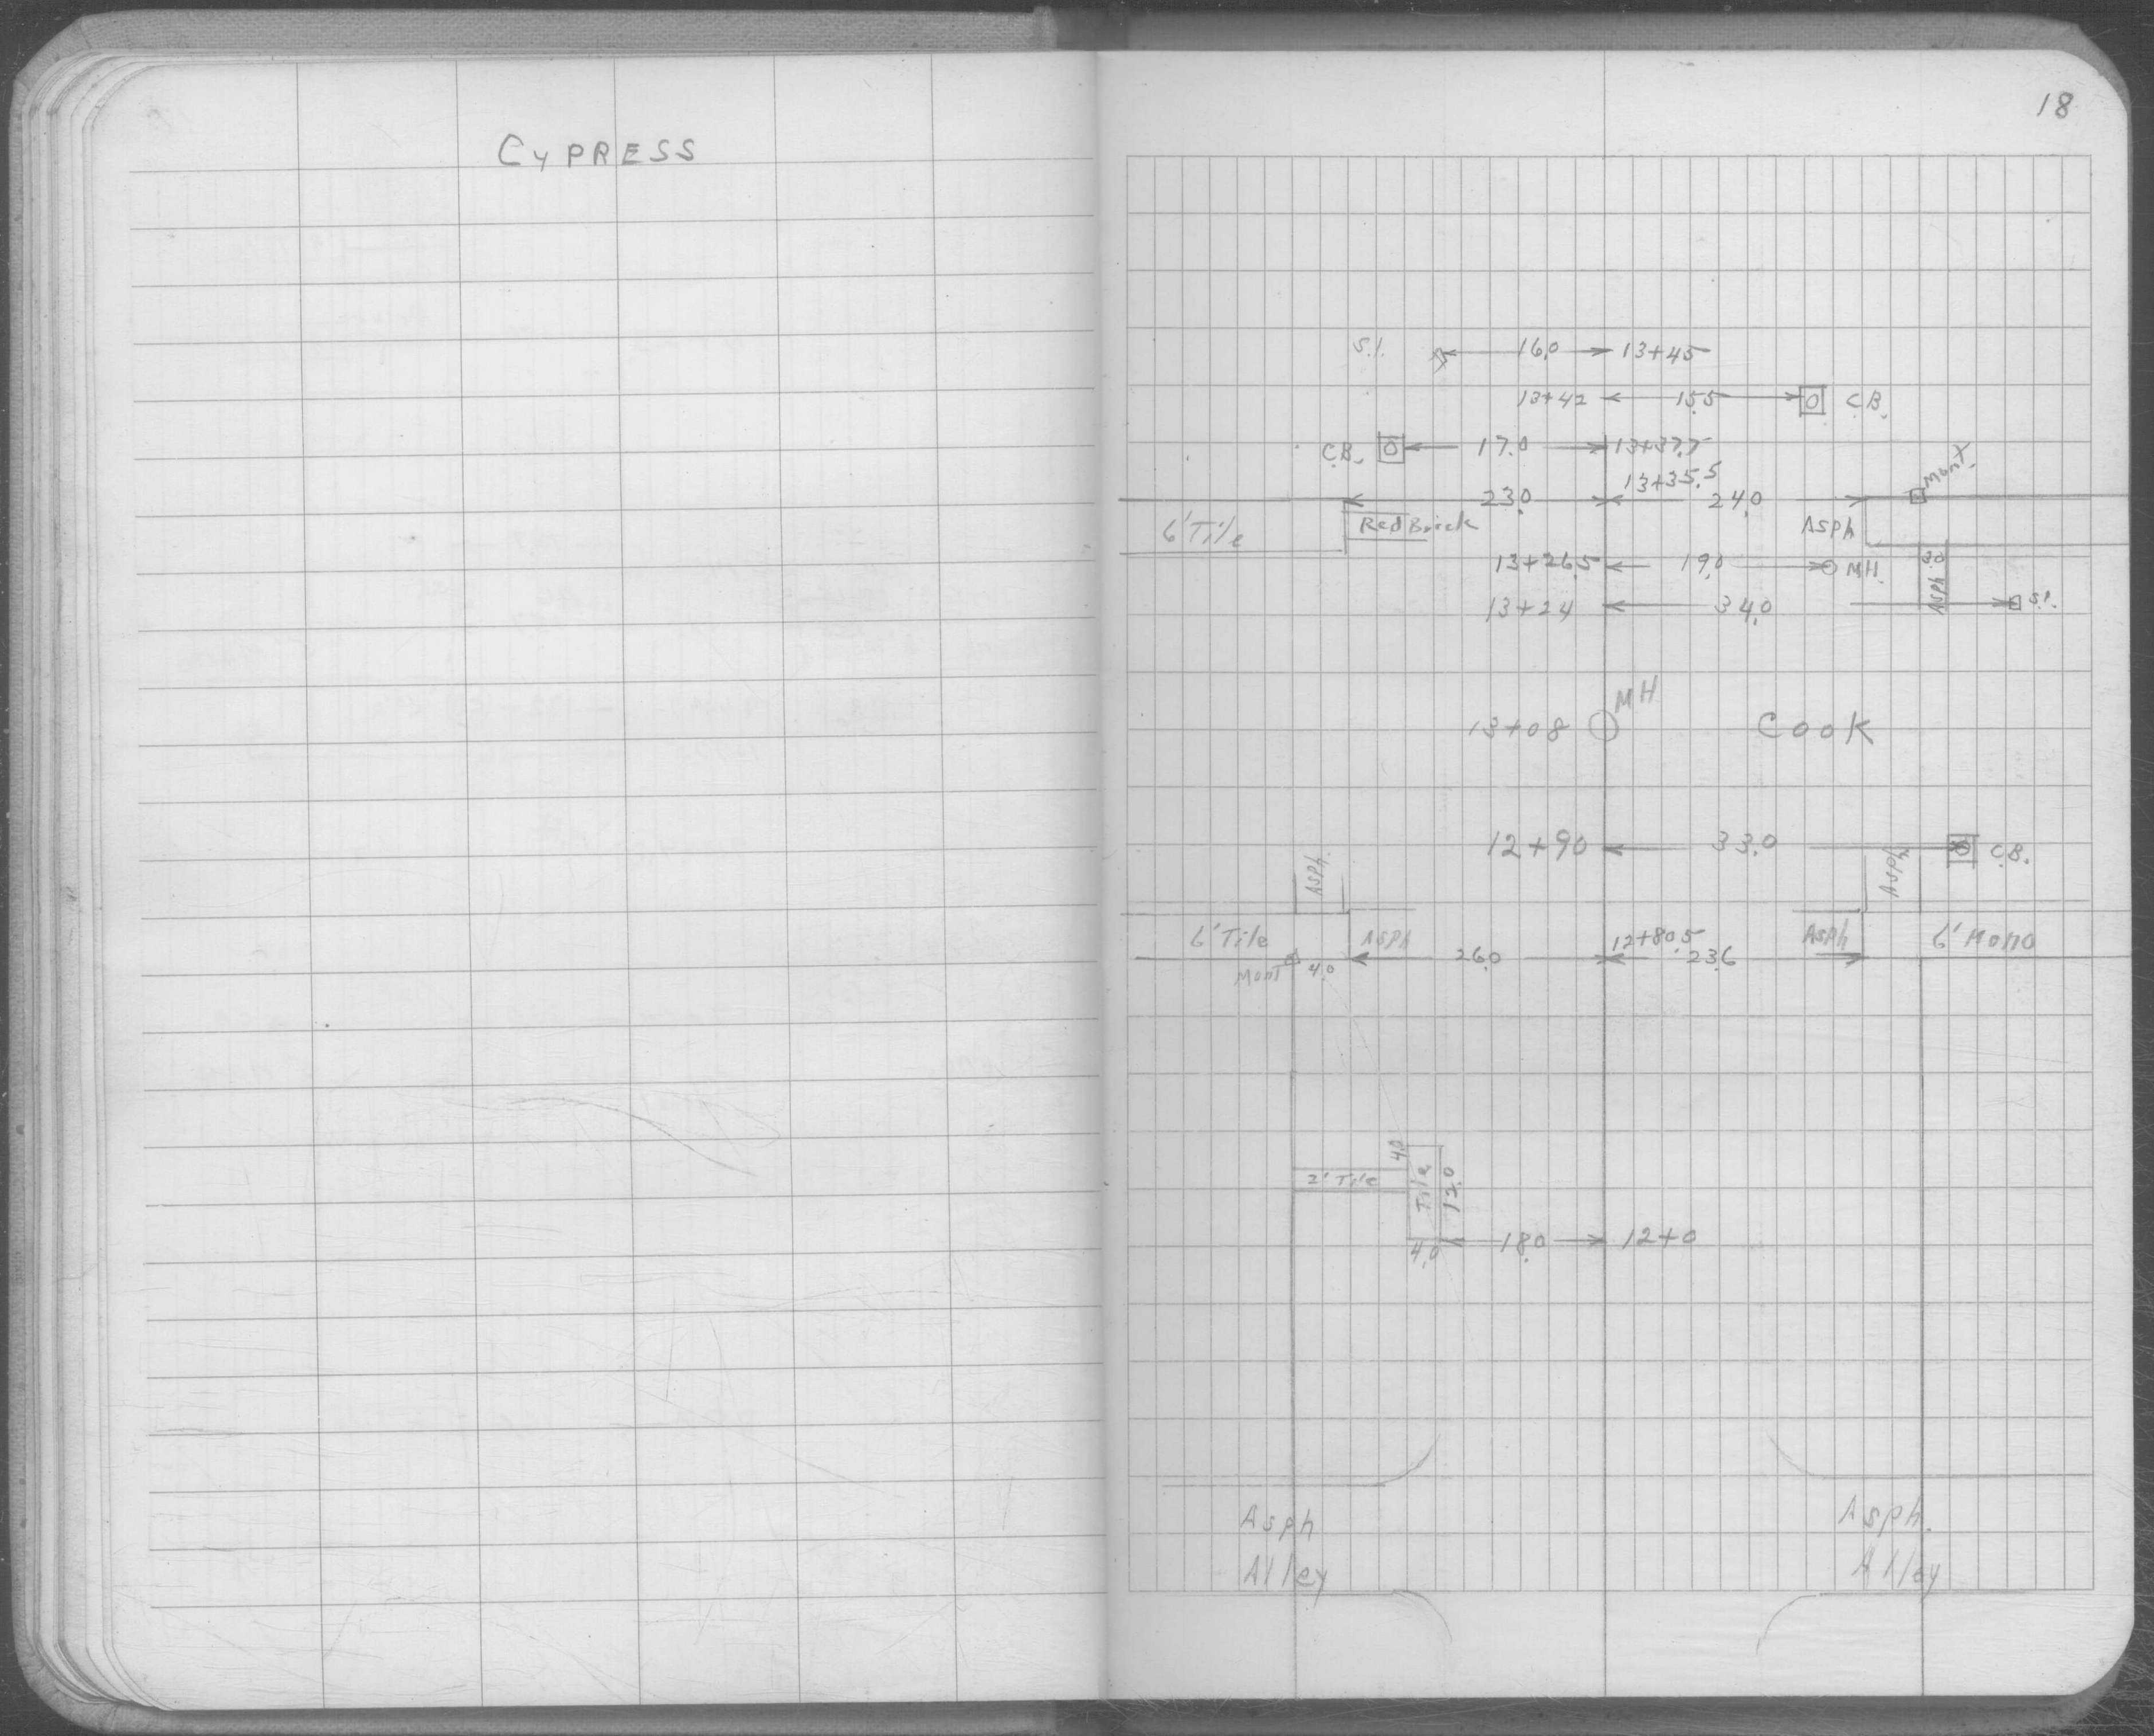 CYPRESS
18
S.I. 16.0 13+45
13+42 15.5 C.B.
C.B. 17.0 13+37.7
13+35.5 Mont.
23.0 24.0
6' Tile Red Brick Asph
13+26.5 19.0 MH. Asph 3.0
13+24 34.0 S.I.
MH
13+08 Cook
12+90 33.0 C.B.
Asph. Asph
6' Tile Asph 12+80.5 Asph 6' Mono
Mont 4.0 26.0 23.6
4.0
2' Tile Tile 12.0
4.0 18.0 12+0
Asph Asph.
Alley Alley